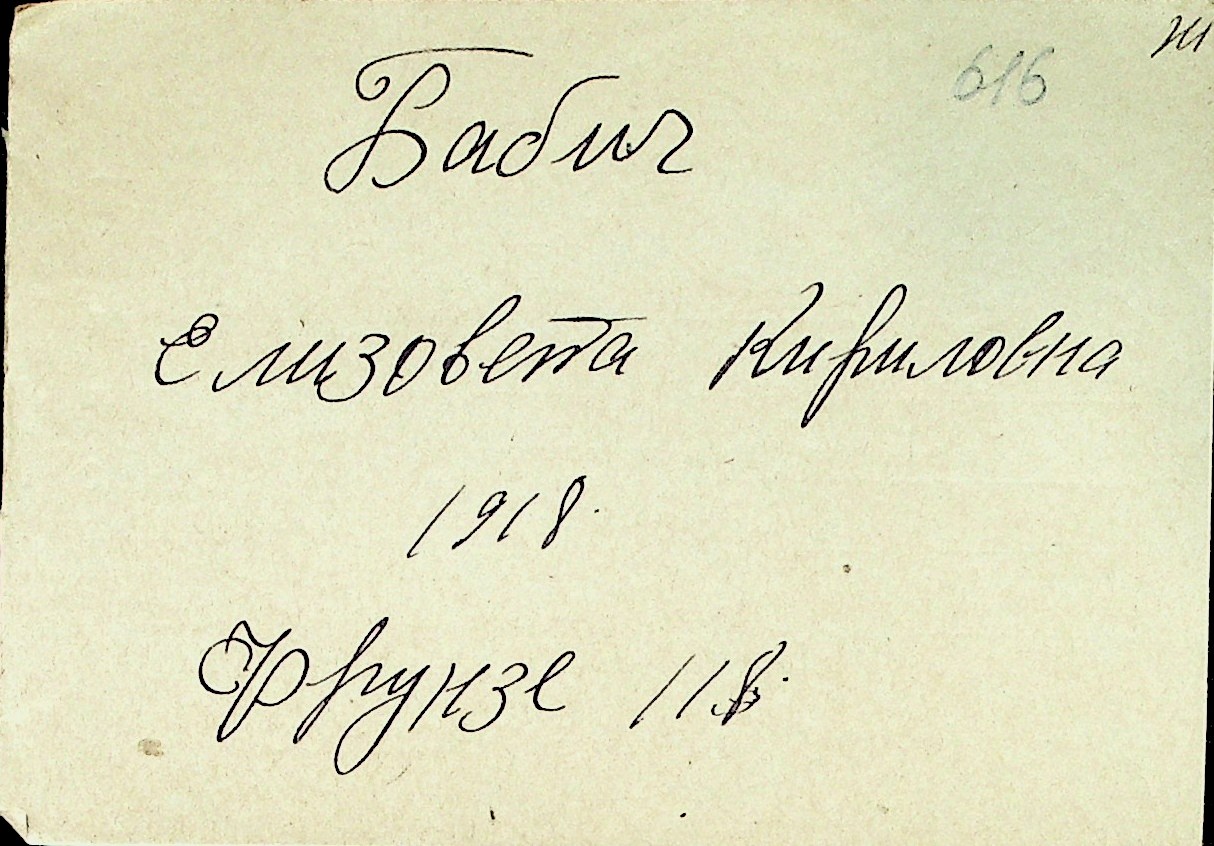 Ж
616
Бабич
Елизовета Кириловна
1918.
Фрунзе 118.